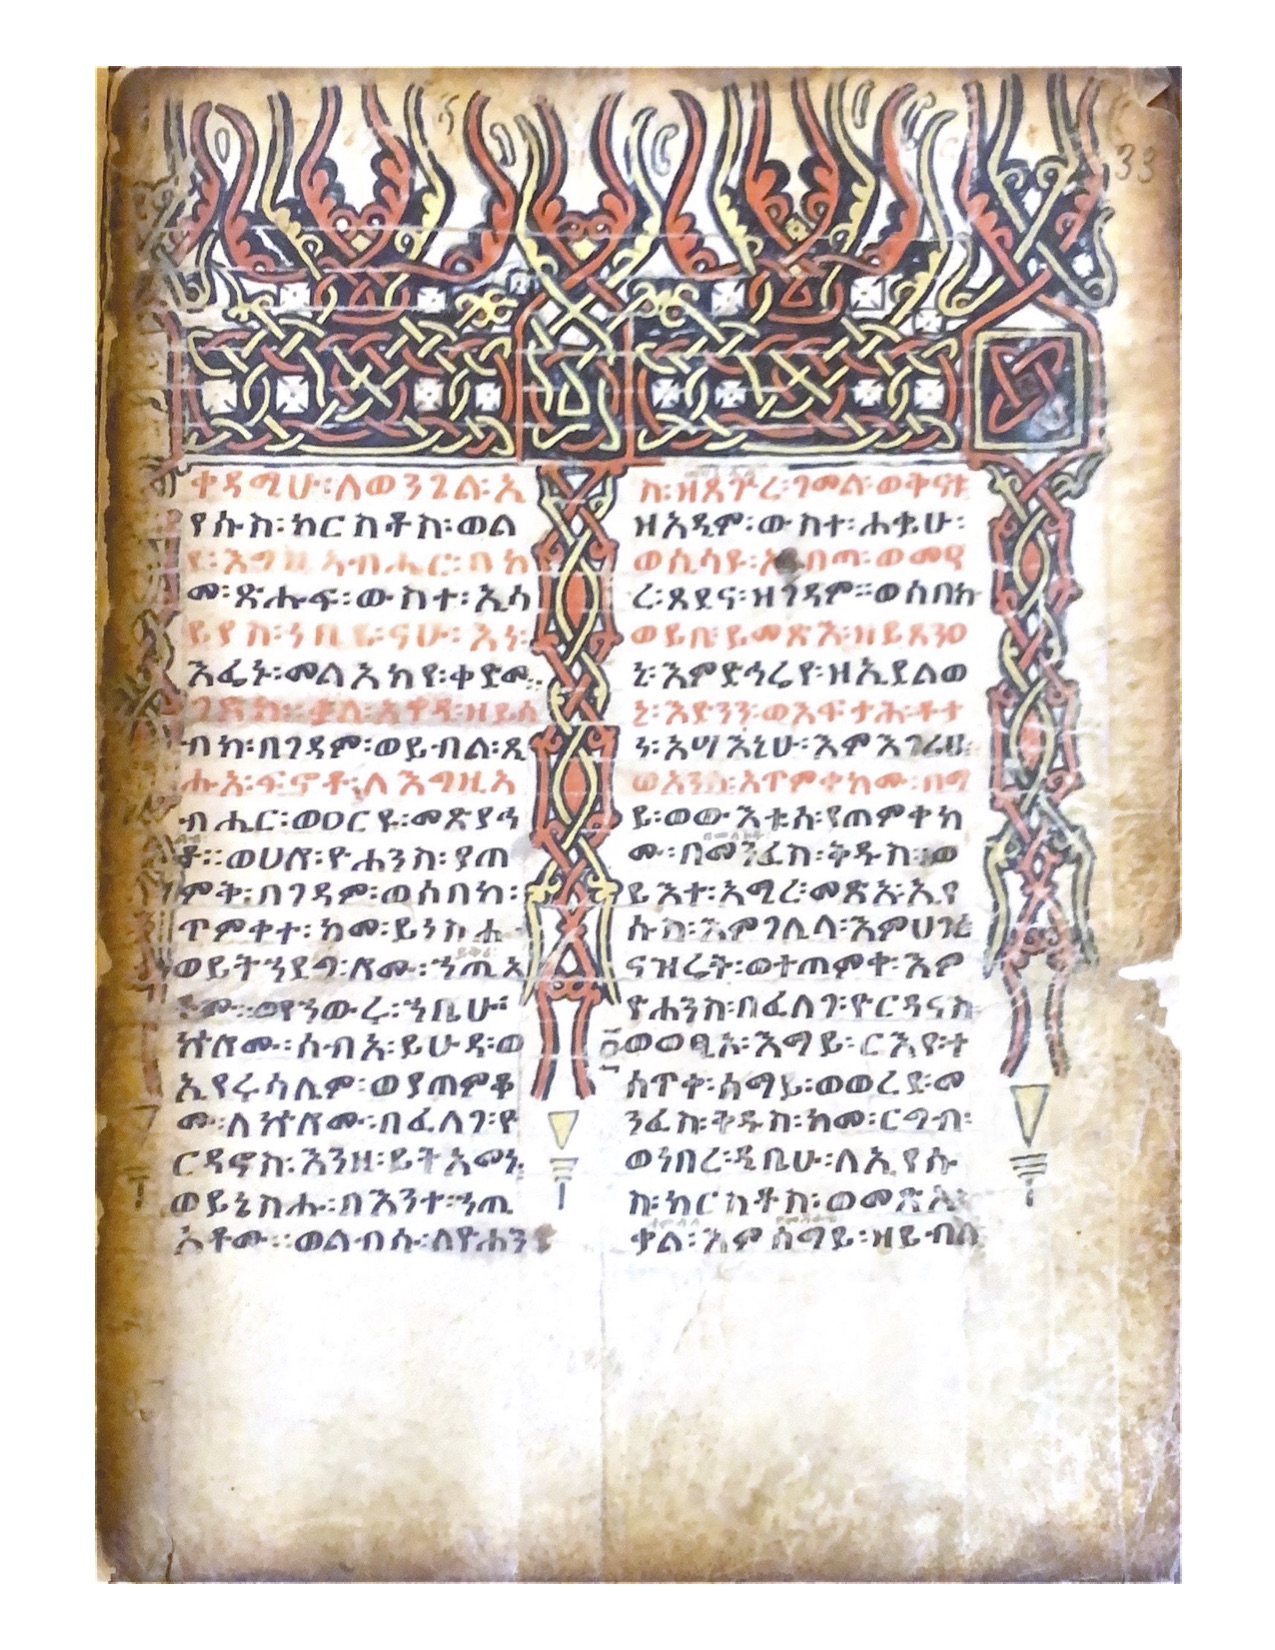 33
ቀዳሚሁ፡ለወንጌል፡ኢ
የሱስ፡ክርስቶስ፡ወል
ደ፡እግዚአብሔር፡በከ
መ፡ጽሑፍ፡ውስተ፡ኢሳ
ይያስ፡ነቢይ፡ናሁ፡አነ፡
እፌኑ፡መልአክየ፡ቀድመ፡
ገጽከ፡፡ቃለ፡አዋዲ፡ዘይሰ
ብክ፡በገዳም፡ወይብል፡ጺ
ሑአ፡ፍኖቶ፡ለእግዚአ
ብሔር፡ወዐርዩ፡መጽያሓ
ቶ፡፡ወሀሎ፡ዮሐንስ፡ያጠ
ምቅ፡በገዳም፡ወሰበከ፡
ጥምቀተ፡ከመ፡ይነስሑ
ወይትኀደግ፡ሎሙ፡ኀጢአ
ቶሙ፡፡ወየኀውሩ፡ኀቤሁ፡፡
ኵሎሙ፡ሰብአ፡ይሁዳ፡ወ
ኢየሩሳሊም፡ወያጠምቆ
ሙ፡ለኵሎሙ፡በፈለገ፡ዮ
ርዳኖስ፡እንዘ፡ይትአመኑ
ወይኔስሑ፡በእንተ፡ኀጢ
አቶሙ፡፡ወልብሱ፡ለዮሐን
ስ፡ዘጸጕረ፡ገመል፡ወቅናቱ
ዘአዲም፡ውስተ፡ሐቌሁ፡
ወሲሳዩ፡አንበጣ፡ወመዓ
ረ፡ጸደና፡ዘገዳም፡፡ወሰበከ
ወይቤ፡ይመጽእ፡ዘይጸንዐ
ኒ፡እምድኅሬየ፡ዘኢይደልወ
ኒ፡እድንን፡ወእፍታሕ፡ቶታ
ነ፡አሣእኒሁ፡እምእገሪሁ፡
ወአንሰ፡አጥምቀክሙ፡በማ
ይ፡ወውእቱሰ፡የጠምቀክ
ሙ፡በመንፈስ፡ቅዱስ፡፡ወ
ይእተ፡አሚረ፡መጽአ፡ኢየ
ሱስ፡እምገሊላ፡እምሀገረ
ናዝሬት፡ወተጠምቀ፡እም
ዮሐንስ፡በፈለገ፡ዮርዳኖስ
ወወፂኦ፡እማይ፡ርእየ፡ተ
ሰጥቀ፡ሰማይ፡ወወረደ፡መ
ንፈስ፡ቅዱስ፡ከመ፡ርግብ፡
ወነበረ፡ዲቤሁ፡ለኢየሱ
ስ፡ክርስቶስ፡ወመጽአ፡
ቃል፡እምሰማይ፡ዘይብል